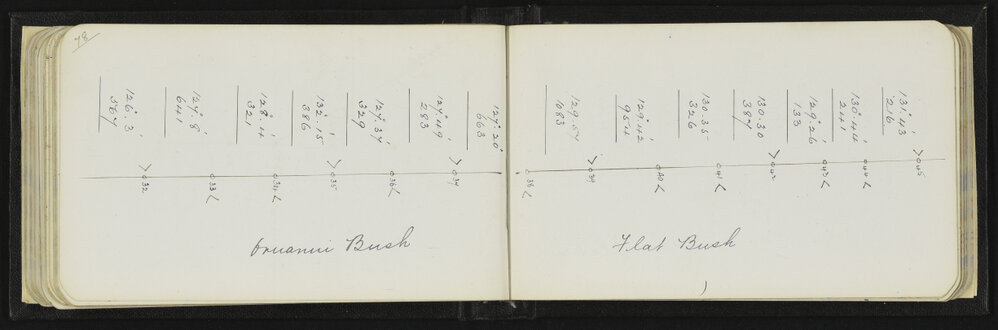 78
126°.3'
367
127°.8'
641
128°.4'
321
132°.15'
386
127°.37'
329
127°.49'
283
127°.20'
663
032
033
034
035
036
037
Oruanui Bush
129.57
083
129°.42'
954
130.35
326
130.30
387
129°.26'
133
130°.44'
241
131°.43'
216
038
039
040
041
042
043
044
045
Flat Bush